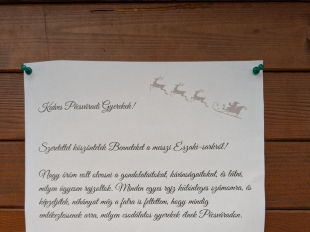 Kedves Pécsváradi Gyerekek!
Szeretettel köszöntelek Benneteket a messzi Északi-sarkról!
Nagy öröm volt olvasni a gondolataitokat, kívánságaitokat, és látni,
milyen ügyesen rajzoltok. Minden egyes rajz különleges számomra, és
képzeljétek, néhányat még a falra is feltettem, hogy mindig
emlékeztessenek arra, milyen csodálatos gyerekek élnek Pécsváradon.